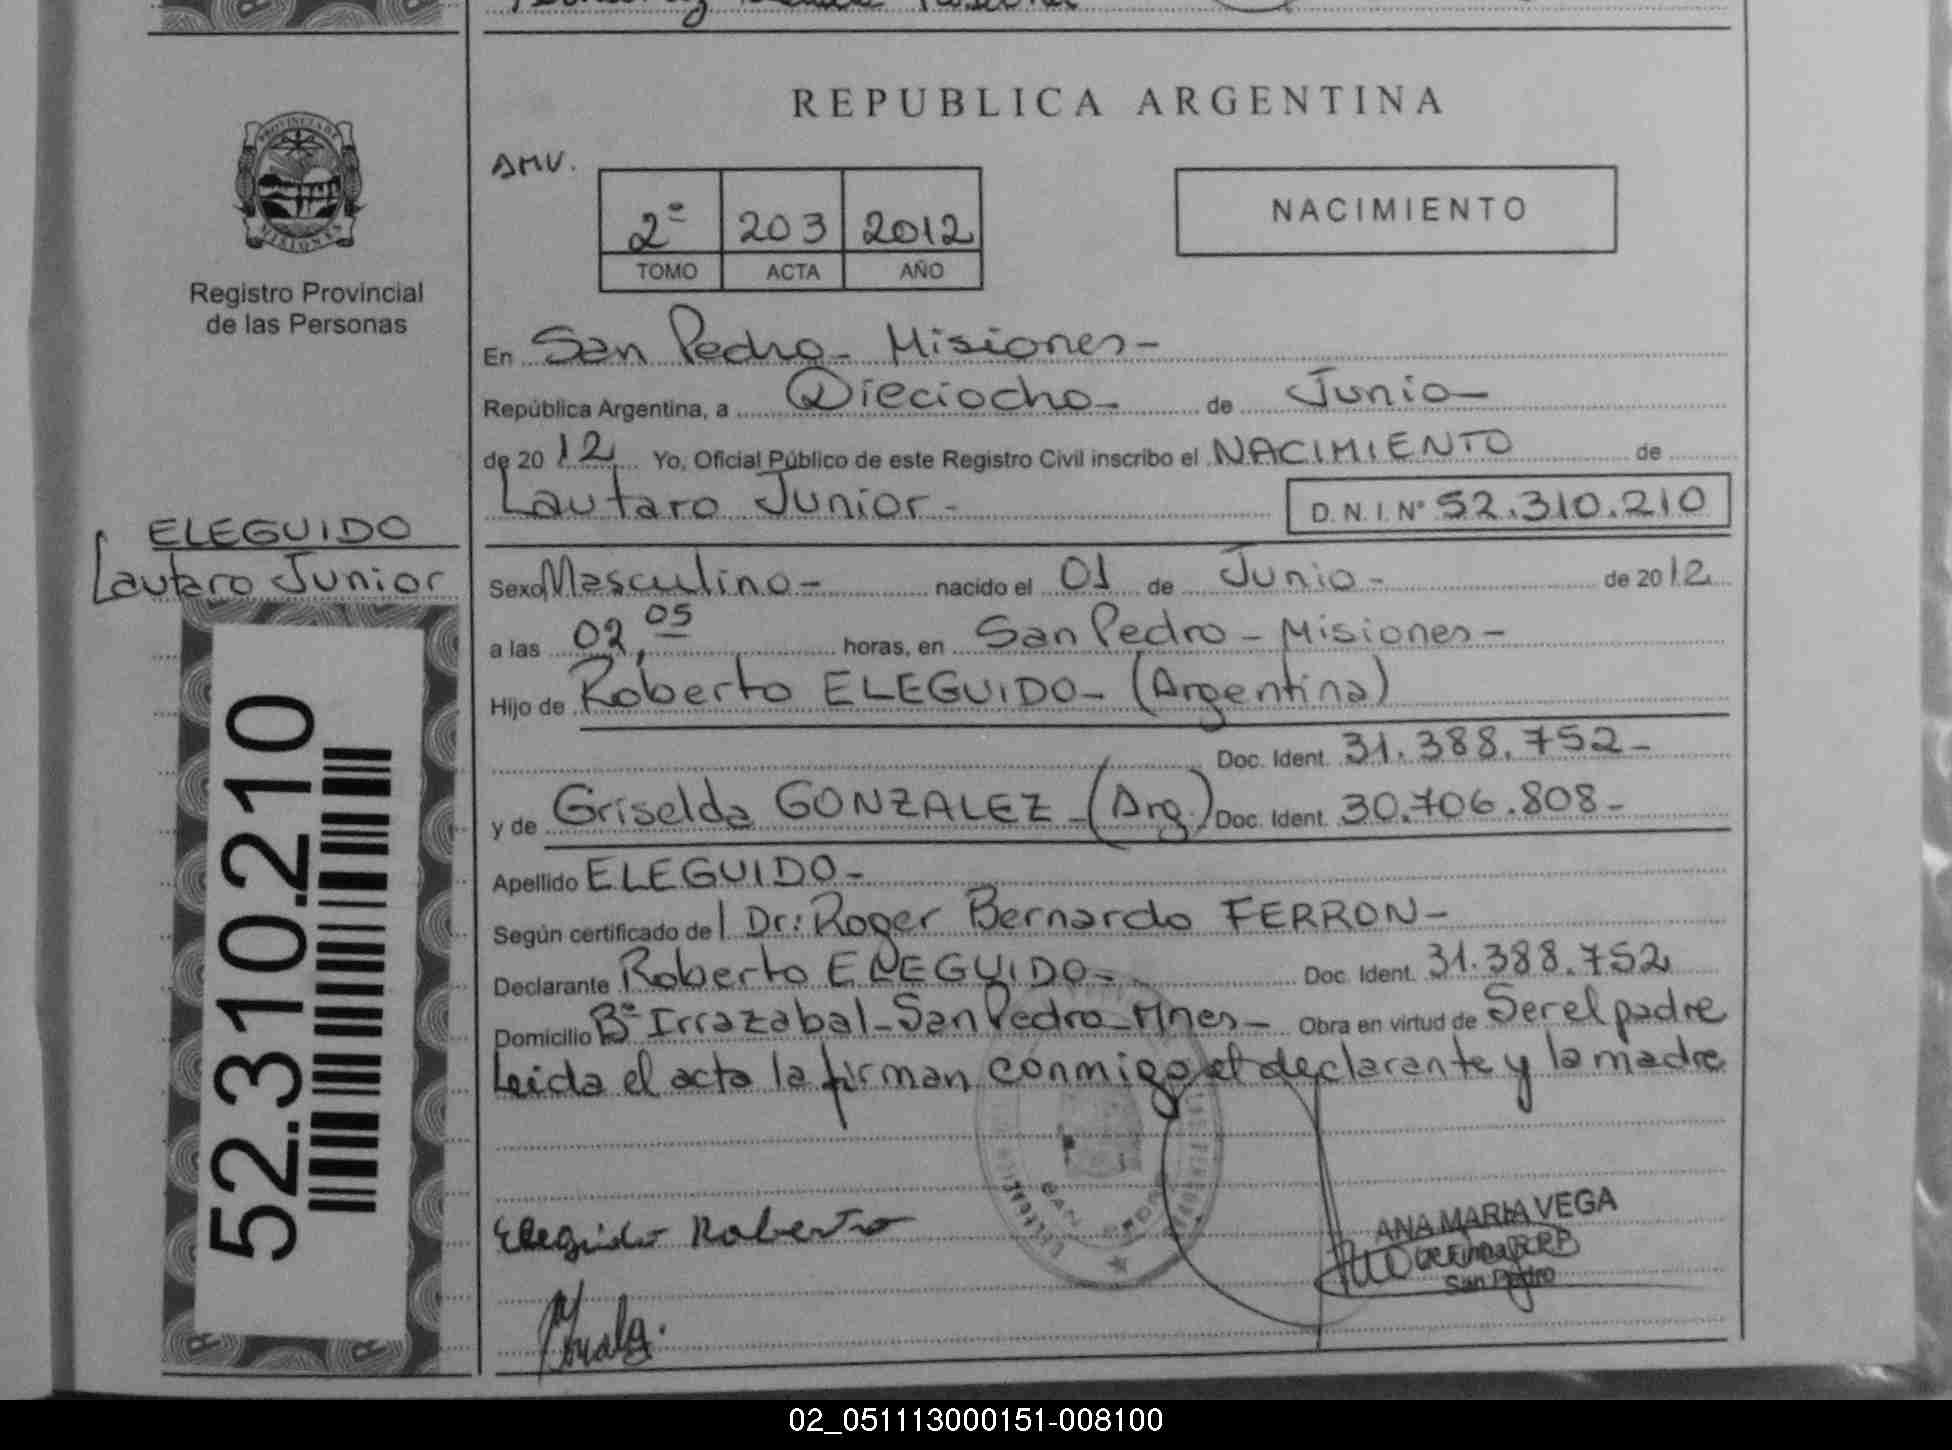 REPUBLICA ARGENTINA
PROVINCIA DE
MISIONES
Registro Provincial
de las Personas
AMV.
2º 203 2012
TOMO ACTA AÑO
NACIMIENTO
En San Pedro - Misiones -
República Argentina, a Dieciocho - de Junio -
de 20 12 Yo, Oficial Público de este Registro Civil inscribo el NACIMIENTO de
Lautaro Junior - D.N.I. Nº 52.310.210
ELEGUIDO
Lautaro Junior
52.310.210
Sexo Masculino - nacido el 01 de Junio - de 20 12
a las 02,05 horas, en San Pedro - Misiones -
Hijo de Roberto ELEGUIDO - (Argentina)
Doc. Ident. 31.388.752 -
y de Griselda GONZALEZ - (Arg.) Doc. Ident. 30.706.808 -
Apellido ELEGUIDO -
Según certificado del Dr: Roger Bernardo FERRON -
Declarante Roberto ELEGUIDO - Doc. Ident. 31.388.752
Domicilio Bº Irrazabal - San Pedro - Mnes - Obra en virtud de Ser el padre
Leida el acta la firman conmigo el declarante y la madre
SAN PEDRO
Eleguido Roberto
ANA MARIA VEGA
San Pedro
02_051113000151-008100